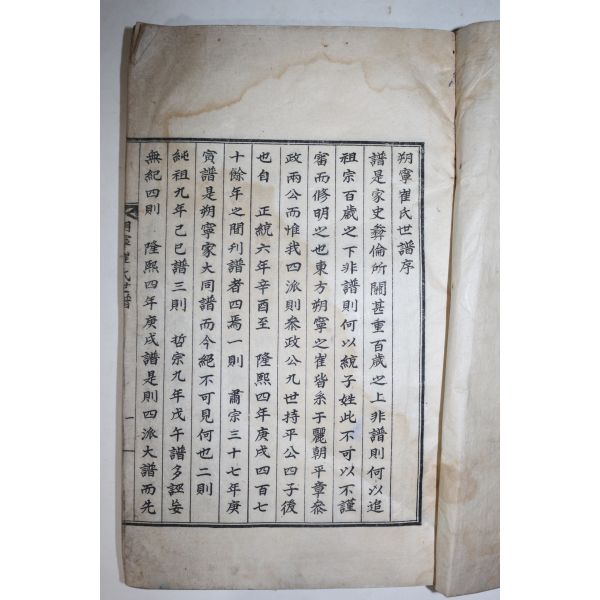 朔寧崔氏世譜序
譜是家史彛倫所關甚重百歲之上非譜則何以追
祖宗百歲之下非譜則何以統子姓此不可以不謹
審而修明之也東方朔寧之崔皆系于麗朝平章叅
政兩公而惟我四派則叅政公九世持平公四子後
也自 正統六年辛酉至 隆熙四年庚戌四百七
十餘年之間刊譜者四焉一則 肅宗三十七年庚
寅譜是朔寧家大同譜而今絕不可見何也二則
純祖九年己巳譜三則 哲宗九年戊午譜多誣妄
無紀四則 隆熙四年庚戌譜是則四派大譜而先
朔寧崔氏世譜
一